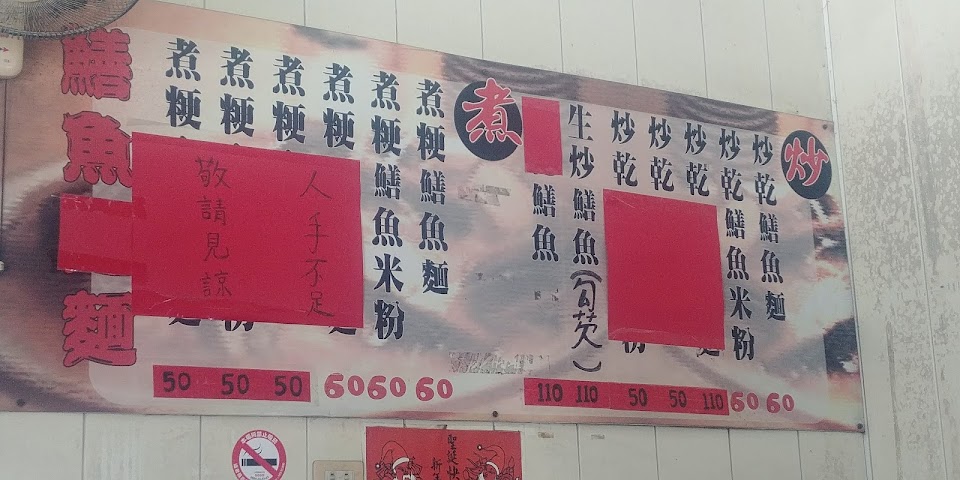 炒
炒乾鱔魚麵
炒乾鱔魚米粉
炒乾
炒乾
炒乾
生炒鱔魚(勾芡)
鱔魚
煮
煮粳鱔魚麵
煮粳鱔魚米粉
煮粳
煮粳
煮粳
煮粳
人手不足
敬請見諒
鱔魚麵
50 50 50 60 60 60
110 110 50 50 110 60 60